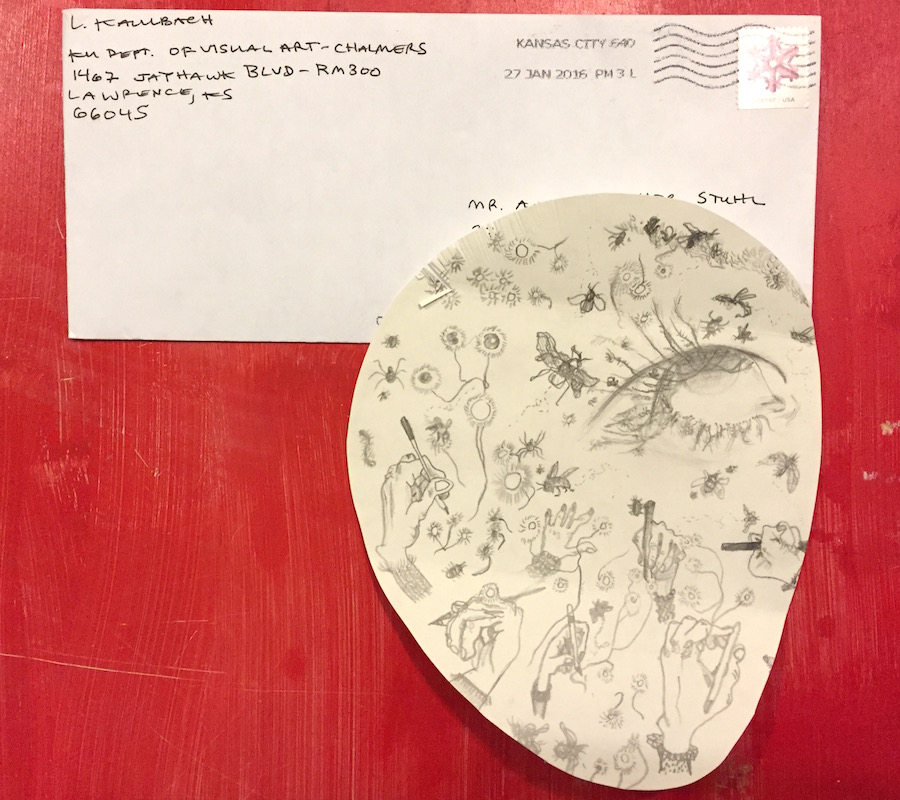 L. KAULBACH
KU DEPT. OF VISUAL ART-CHALMERS
1467 JAYHAWK BLVD-RM300
LAWRENCE, KS
66045
KANSAS CITY 640
27 JAN 2016 PM 3 L
USA
MR. STUHL